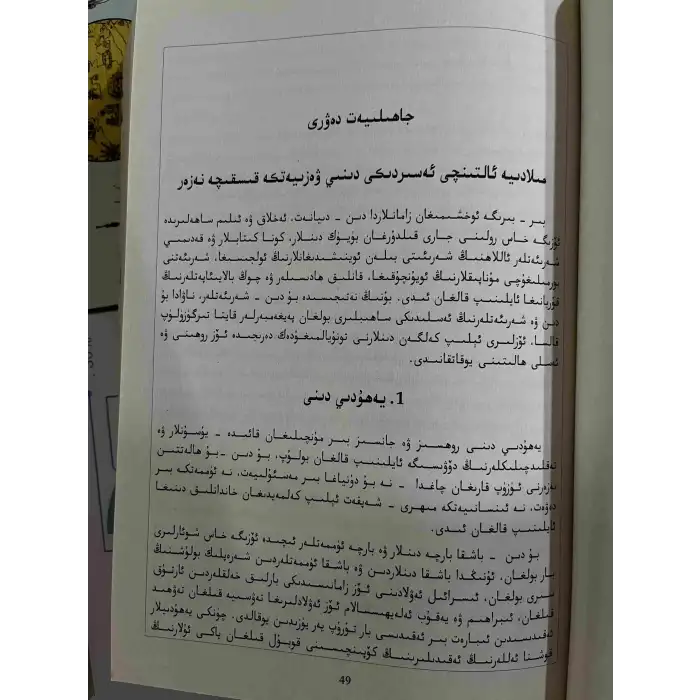 جاھىلىيەت دەۋرى
مىلادىيە ئالتىنچى ئەسىردىكى دىنىي ۋەزىيەتكە قىسقىچە نەزەر
بىر - بىرىگە ئوخشىمىغان زامانلاردا دىن - دىيانەت، ئەخلاق ۋە ئىلىم ساھەلىرىدە
ئۆزىگە خاس رولىنى جارى قىلدۇرغان بۈيۈك دىنلار، كونا كىتابلار ۋە قەدىمىي
شەرىئەتلەر ئاللاھنىڭ شەرىئىتى بىلەن ئوينىشىدىغانلارنىڭ ئولجىسىغا، شەرىئەتنى
بۇرمىلىغۇچى مۇناپىقلارنىڭ ئويۇنچۇقىغا، قانلىق ھادىسىلەر ۋە چوڭ بالايىئاپەتلەرنىڭ
قۇربانىغا ئايلىنىپ قالغان ئىدى. بۇنىڭ نەتىجىسىدە بۇ دىن - شەرىئەتلەر، ناۋادا بۇ
دىن ۋە شەرىئەتلەرنىڭ ئەسلىدىكى ساھىبلىرى بولغان پەيغەمبەرلەر قايتا تىرگۈزۈلۈپ
قالسا، ئۆزلىرى ئېلىپ كەلگەن دىنلارنى تونۇيالمىغۇدەك دەرىجىدە ئۆز روھىنى ۋە
ئەسلى ھالىتىنى يوقاتقانىدى.
1. يەھۇدىي دىنى
يەھۇدىي دىنى روھسىز ۋە جانسىز بىر مۇنچىلىغان قائىدە - يۇسۇنلار ۋە
تەقلىدچىلىكلەرنىڭ دۆۋىسىگە ئايلىنىپ قالغان بولۇپ، بۇ دىن -بۇ ھالەتتىن
نەزەرنى ئۈزۈپ قارىغان چاغدا - نە بۇ دۇنياغا بىر مەسئۇلىيەت، نە ئۈممەتكە بىر
دەۋەت، نە ئىنسانىيەتكە مېھرى - شەپقەت ئېلىپ كەلمەيدىغان خاندانلىق دىنىغا
ئايلىنىپ قالغان ئىدى.
بۇ دىن - باشقا بارچە دىنلار ۋە بارچە ئۈممەتلەر ئىچىدە ئۆزىگە خاس شوئارلىرى
بار بولغان، ئۇنىڭدا باشقا دىنلاردىن ۋە باشقا ئۈممەتلەردىن شەرەپلىك بولۇشنىڭ
سىرى بولغان، ئىسرائىل ئەۋلادىنى ئۆز زامانىسىدىكى بارلىق خەلقلەردىن ئارتۇق
قىلغان، ئىبراھىم ۋە يەقۇب ئەلەيھىسسالام ئۆز ئەۋلادلىرىغا تەۋسىيە قىلغان تەۋھىد
ئەقىدىسىدىن ئىبارەت بىر ئەقىدىسى بار تۇرۇپ يەر يۈزىدىن يوقالدى. چۈنكى يەھۇدىيلار
قوشنا ئەللەرنىڭ ئەقىدىلىرىنىڭ كۆپىنچىسىنى قوبۇل قىلغان ياكى ئۇلارنىڭ
49